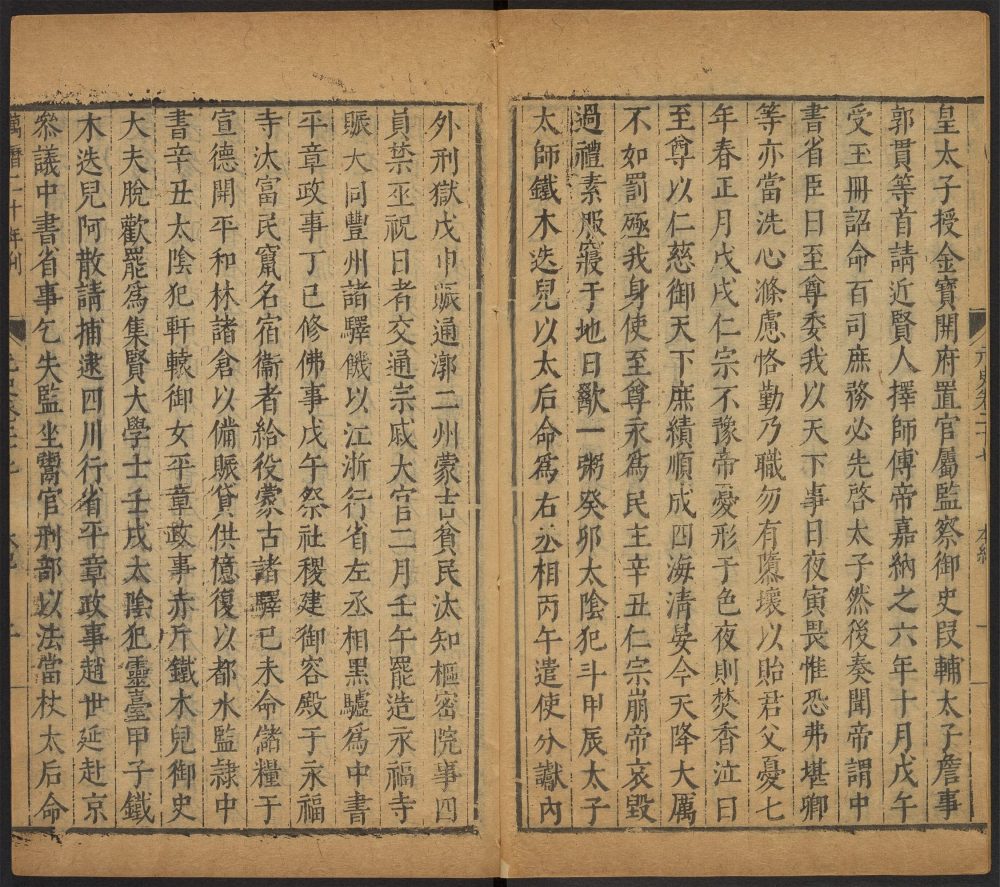 皇太子授金寶開府置官屬監察御史段輔太子詹事
郭貫等首請近賢人擇師傅帝嘉納之六年十月戊午
受玉冊詔命百司庶務必先啓太子然後奏聞帝謂中
書省臣曰至尊委我以天下事日夜寅畏惟恐弗堪卿
等亦當洗心滌慮恪勤乃職勿有隳壞以貽君父憂七
年春正月戊戌仁宗不豫帝憂形于色夜則焚香泣曰
至尊以仁慈御天下庶績順成四海清晏今天降大厲
不如罰殛我身使至尊永爲民主辛丑仁宗崩帝哀毀
過禮素服寢于地日歠一粥癸卯太陰犯斗甲辰太子
太師鐵木迭兒以太后命爲右丞相丙午遣使分讞內
外刑獄戊申賑通漷二州蒙古貧民汰知樞密院事四
員禁巫祝日者交通宗戚大官二月壬午罷造永福寺
賑大同豐州諸驛饑以江浙行省左丞相黑驢爲中書
平章政事丁巳修佛事戊午祭社稷建御容殿于永福
寺汰富民竄名宿衞者給役蒙古諸驛已未命儲糧于
宣德開平和林諸倉以備賑貸供億復以都水監隷中
書辛丑太陰犯軒轅御女平章政事赤斤鐵木兒御史
大夫脫歡罷爲集賢大學士壬戌太陰犯靈臺甲子鐵
木迭兒阿散請捕逮四川行省平章政事趙世延赴京
叅議中書省事乞失監坐鬻官刑部以法當杖太后命
萬曆二十年刊